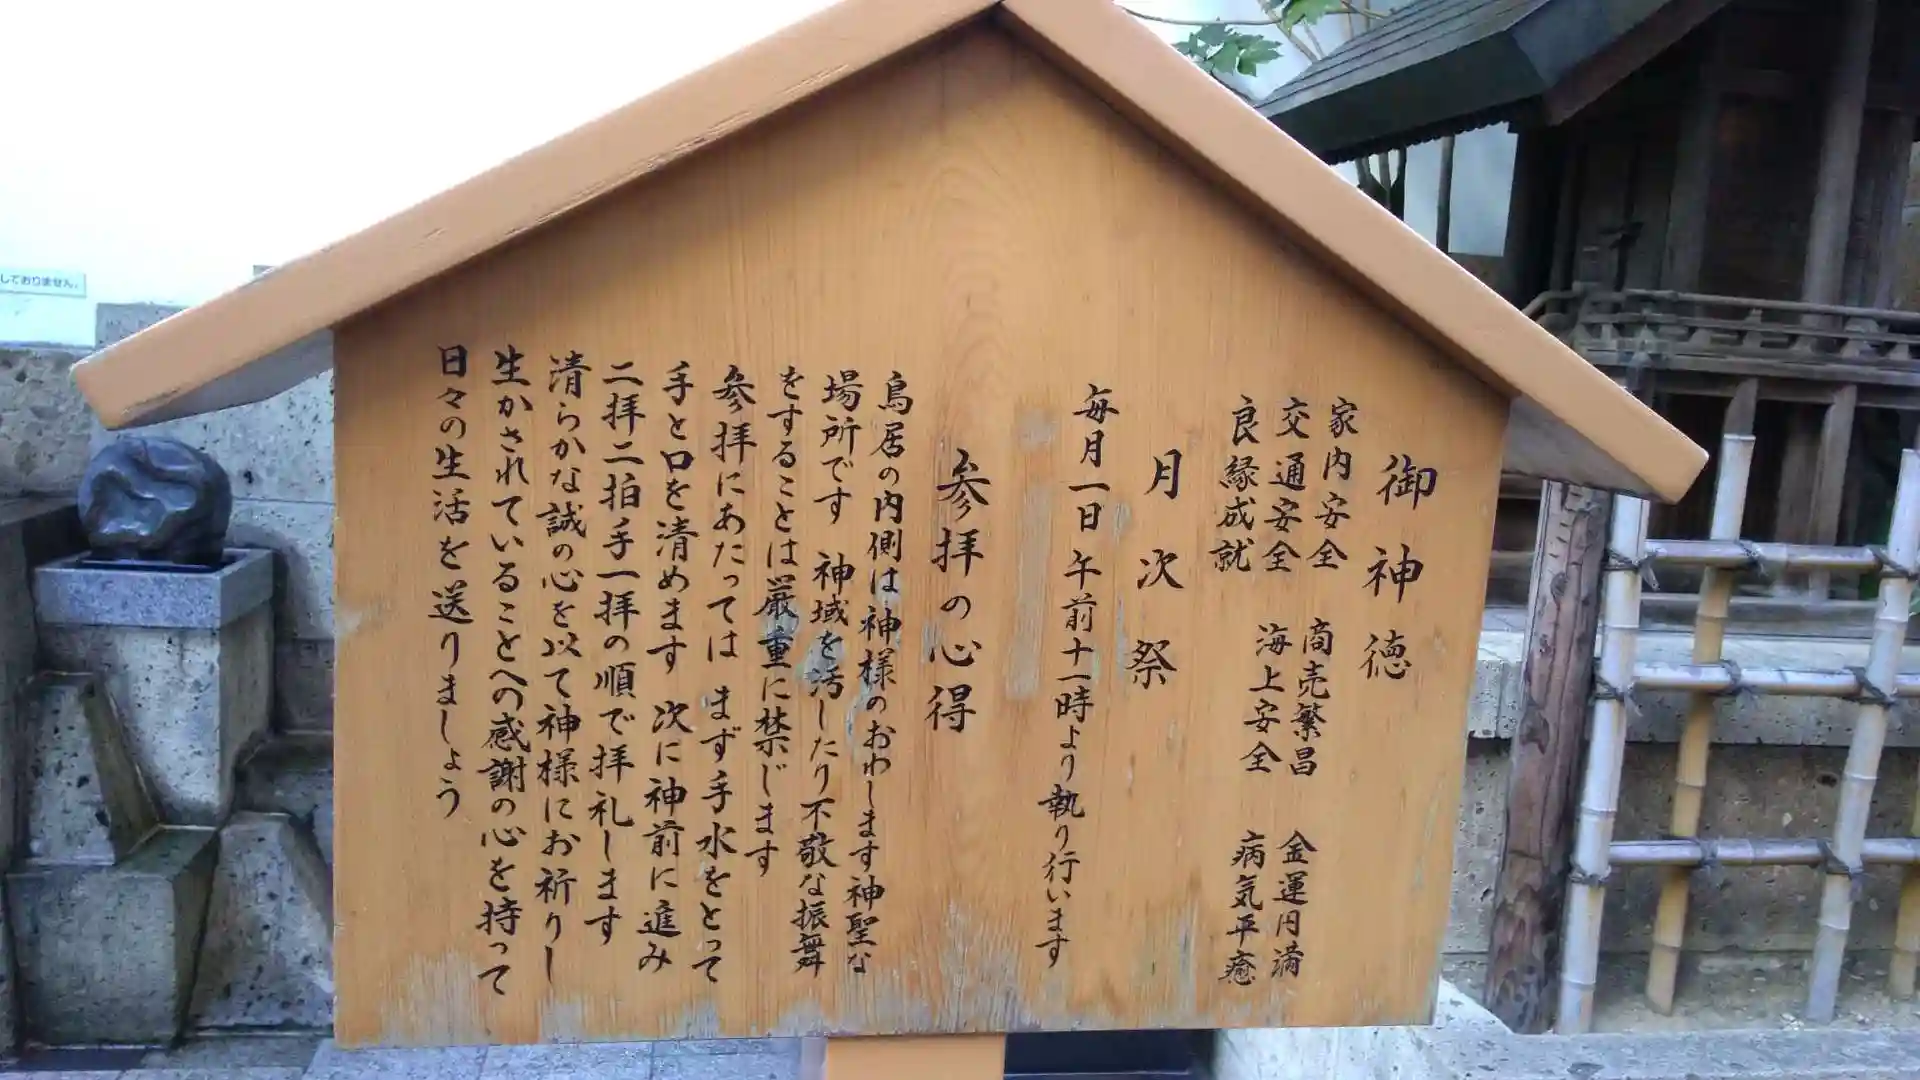 御神徳
家内安全 商売繁昌 金運円満
交通安全 海上安全 病気平癒
良縁成就
月次祭
毎月一日 午前十一時より執り行います
参拝の心得
鳥居の内側は神様のおわします神聖な
場所です 神域を汚したり不敬な振舞
をすることは厳重に禁じます
参拝にあたっては まず手水をとって
手と口を清めます 次に神前に進み
二拝二拍手一拝の順で拝礼します
清らかな誠の心を以て神様にお祈りし
生かされていることへの感謝の心を持って
日々の生活を送りましょう
しておりません。